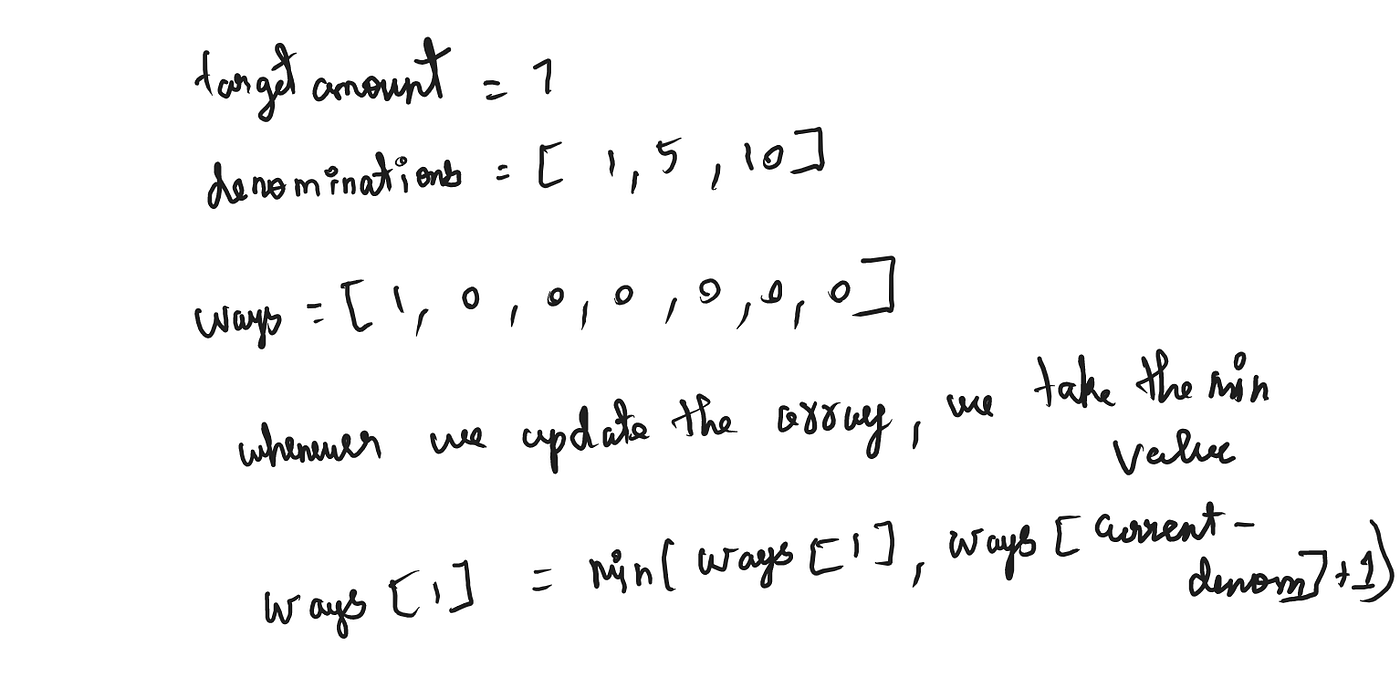 target amount = 7
denominations = [ 1, 5, 10]
ways = [ 1, 0, 0, 0, 0, 0, 0 ]
whenever we update the array, we take the min
value
ways [1] = min( ways [1], ways [ current -
denom] +1)